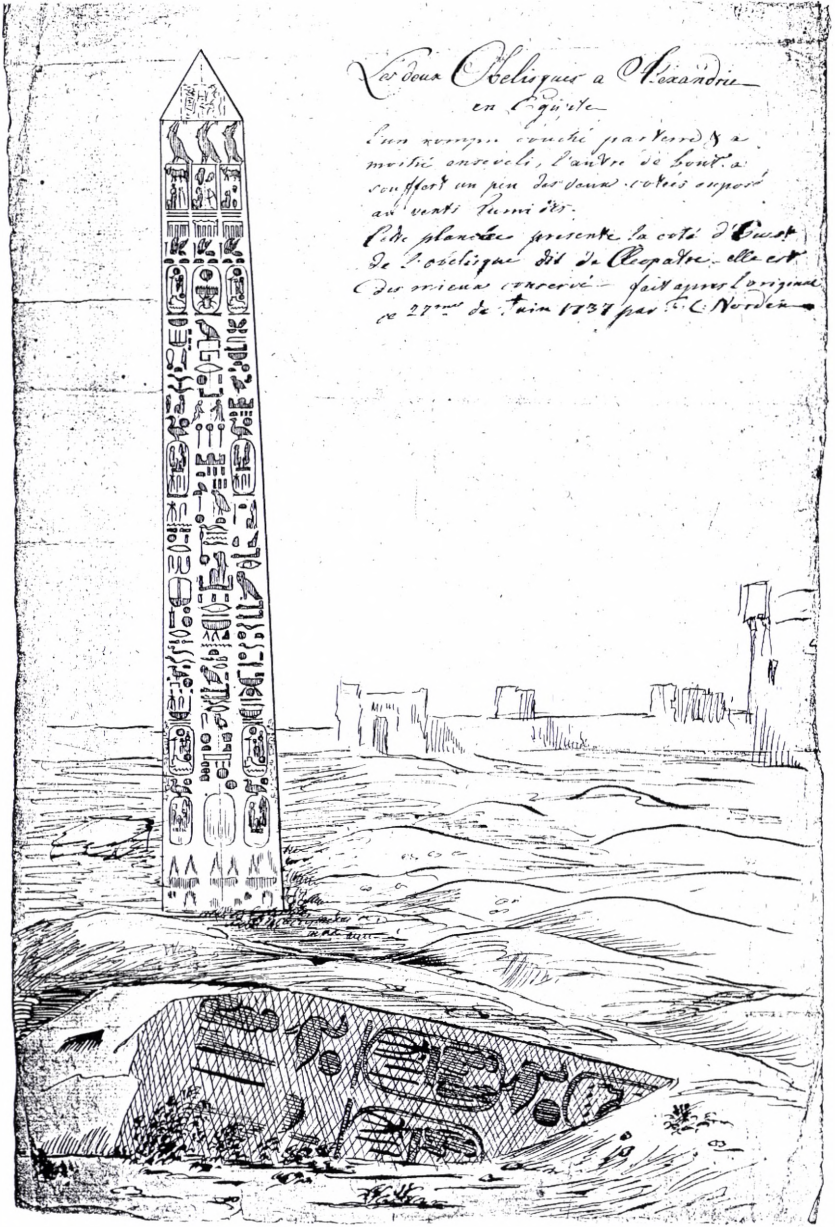 Les deux Obelisques a Alexandrie
en Egipte
l'un rompu couché parterre & a
moitié enseveli, l'autre de bout a
souffert un peu des deux cotéés exposé
au vents
Cette planche presente la coté d'Ouest
de l'obelisque dit de Cleopatre elle est
des mieux conservé fait apres l'original
ce 27me de Juin 1737 par F. L. Norden